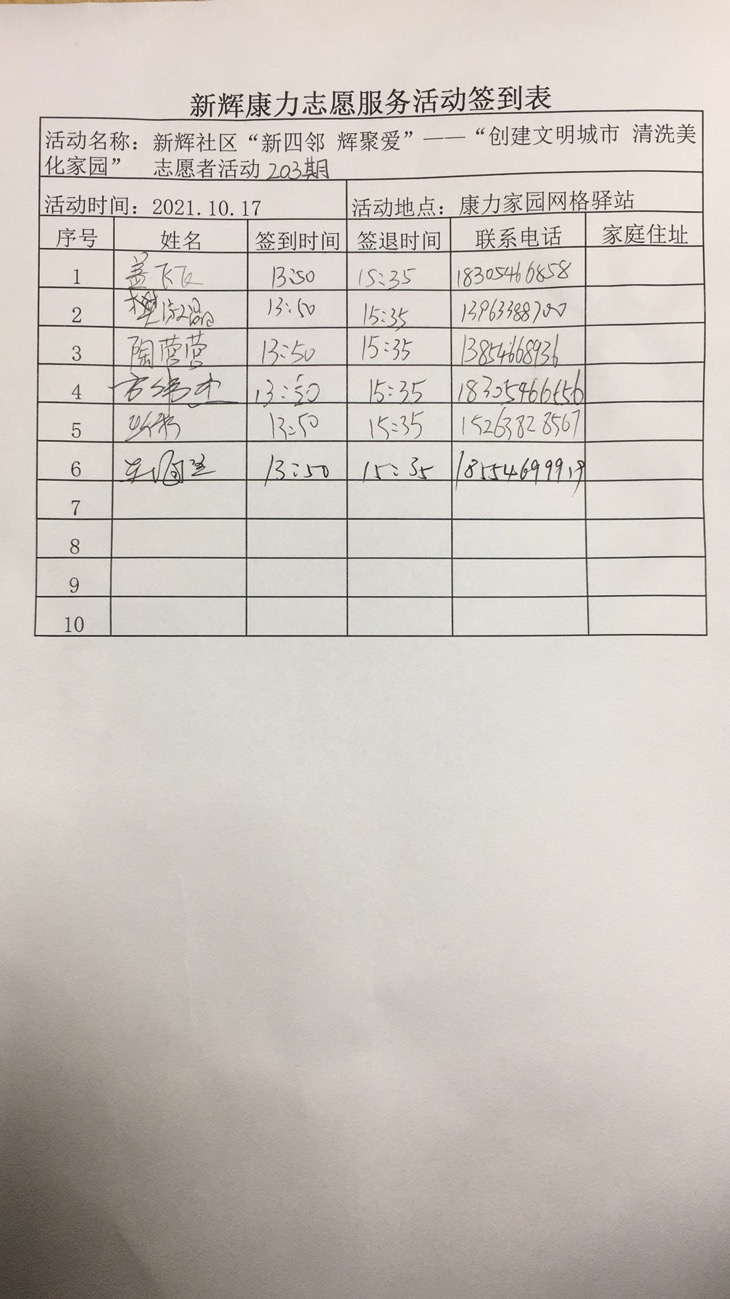 新辉康力志愿服务活动签到表
活动名称：新辉社区“新四邻 辉聚爱”——“创建文明城市 清洗美
化家园” 志愿者活动 203期
活动时间：2021.10.17 活动地点：康力家园网格驿站
序号 姓名 签到时间 签退时间 联系电话 家庭住址
1 盖飞飞 13:50 15:35 18305466858
2 13:50 15:35 13963388700
3 陶营营 13:50 15:35 13854668936
4 13:50 15:35 18305466656
5 13:50 15:35 15263828567
6 13:50 15:35 18554699919
7
8
9
10